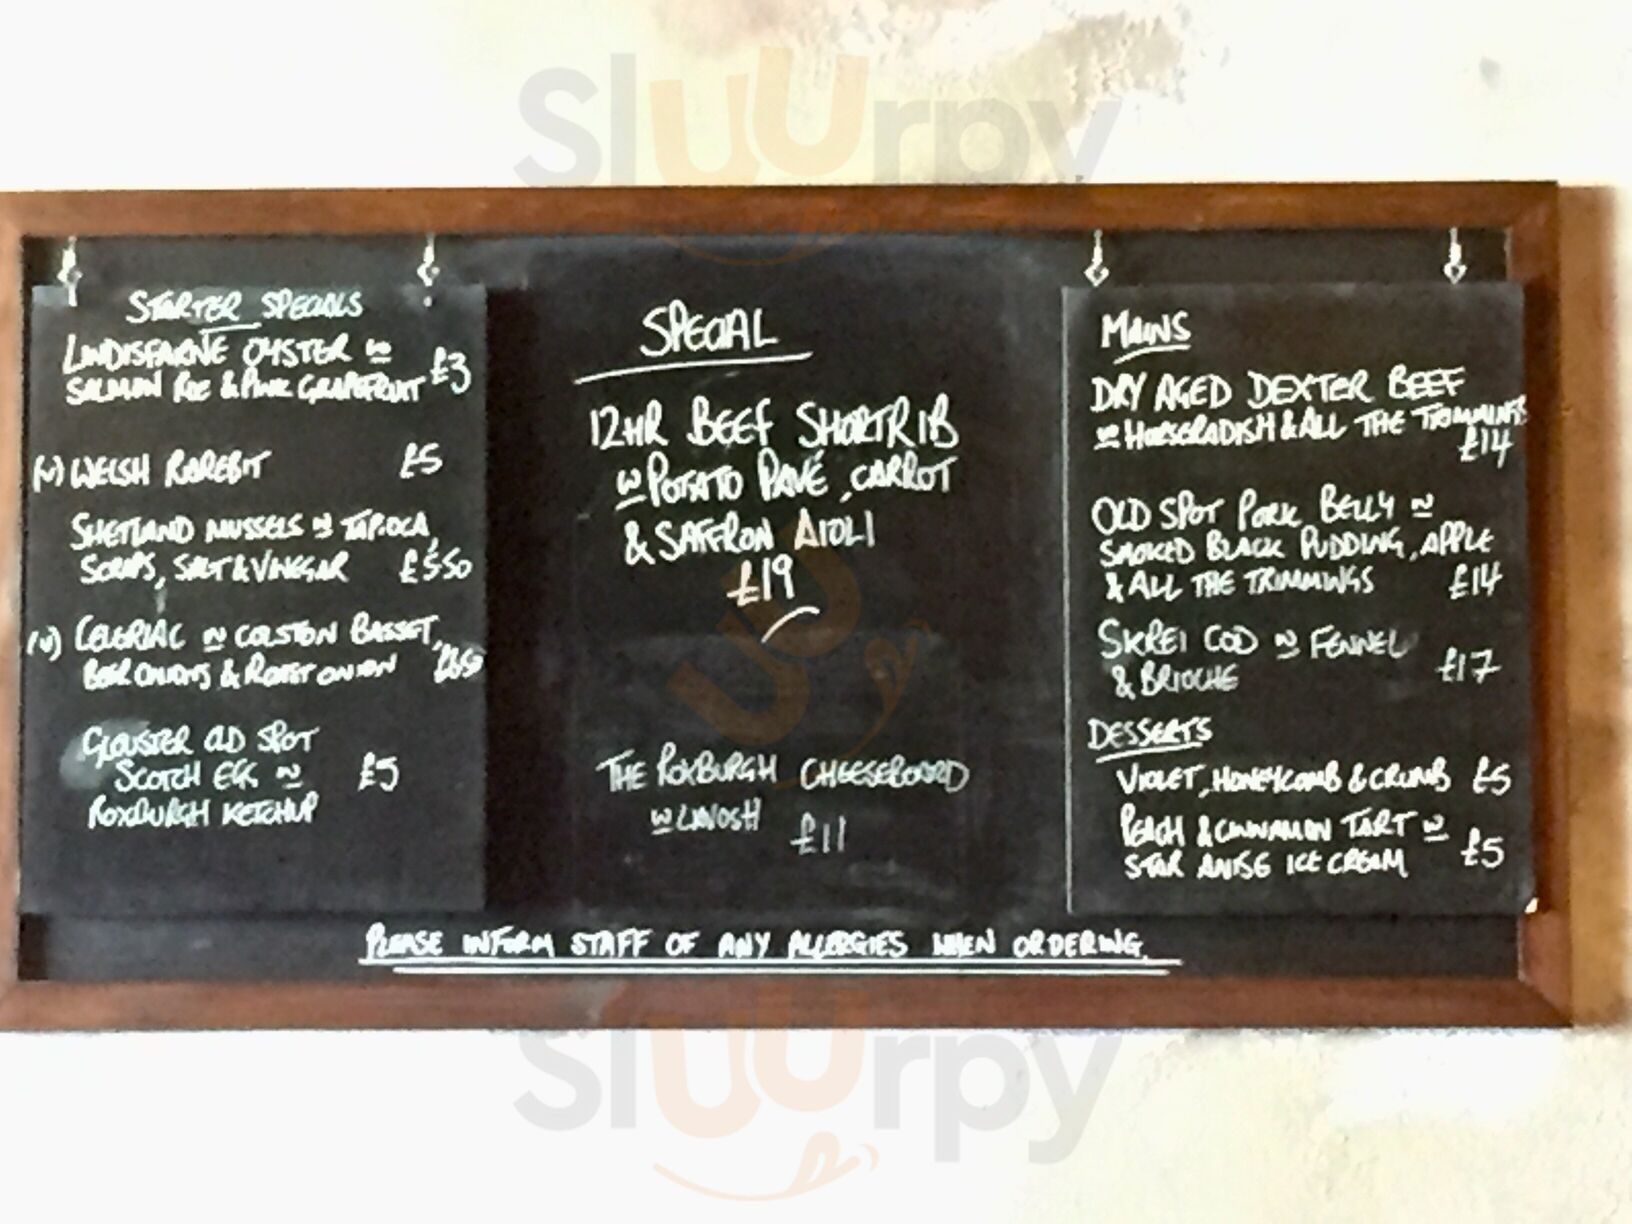 Sluurpy
STARTER SPECIALS
LINDISFARNE OYSTER w
SALMON ROE & PINK GRAPEFRUIT £3
(v) WELSH RAREBIT £5
SHETLAND MUSSELS w TAPIOCA,
SCRAPS, SALT & VINEGAR £5.50
(v) CELERIAC w COLSTON BASSET,
& ROAST ONION
GLOUSTER OLD SPOT
SCOTCH EGG w £5
ROXBURGH KETCHUP
SPECIAL
12HR BEEF SHORTRIB
w POTATO PAVÉ, CARROT
& SAFFRON AIOLI
£19
THE ROXBURGH CHEESEBOARD
w LAVOSH £11
MAINS
DRY AGED DEXTER BEEF
w HORSERADISH & ALL THE TRIMMINGS
£14
OLD SPOT PORK BELLY w
SMOKED BLACK PUDDING, APPLE
& ALL THE TRIMMINGS £14
SKREI COD w FENNEL
& BRIOCHE £17
DESSERTS
VIOLET, HONEYCOMB & CRUMB £5
PEACH & CINNAMON TART w
STAR ANISE ICE CREAM £5
PLEASE INFORM STAFF OF ANY ALLERGIES WHEN ORDERING.
Sluurpy